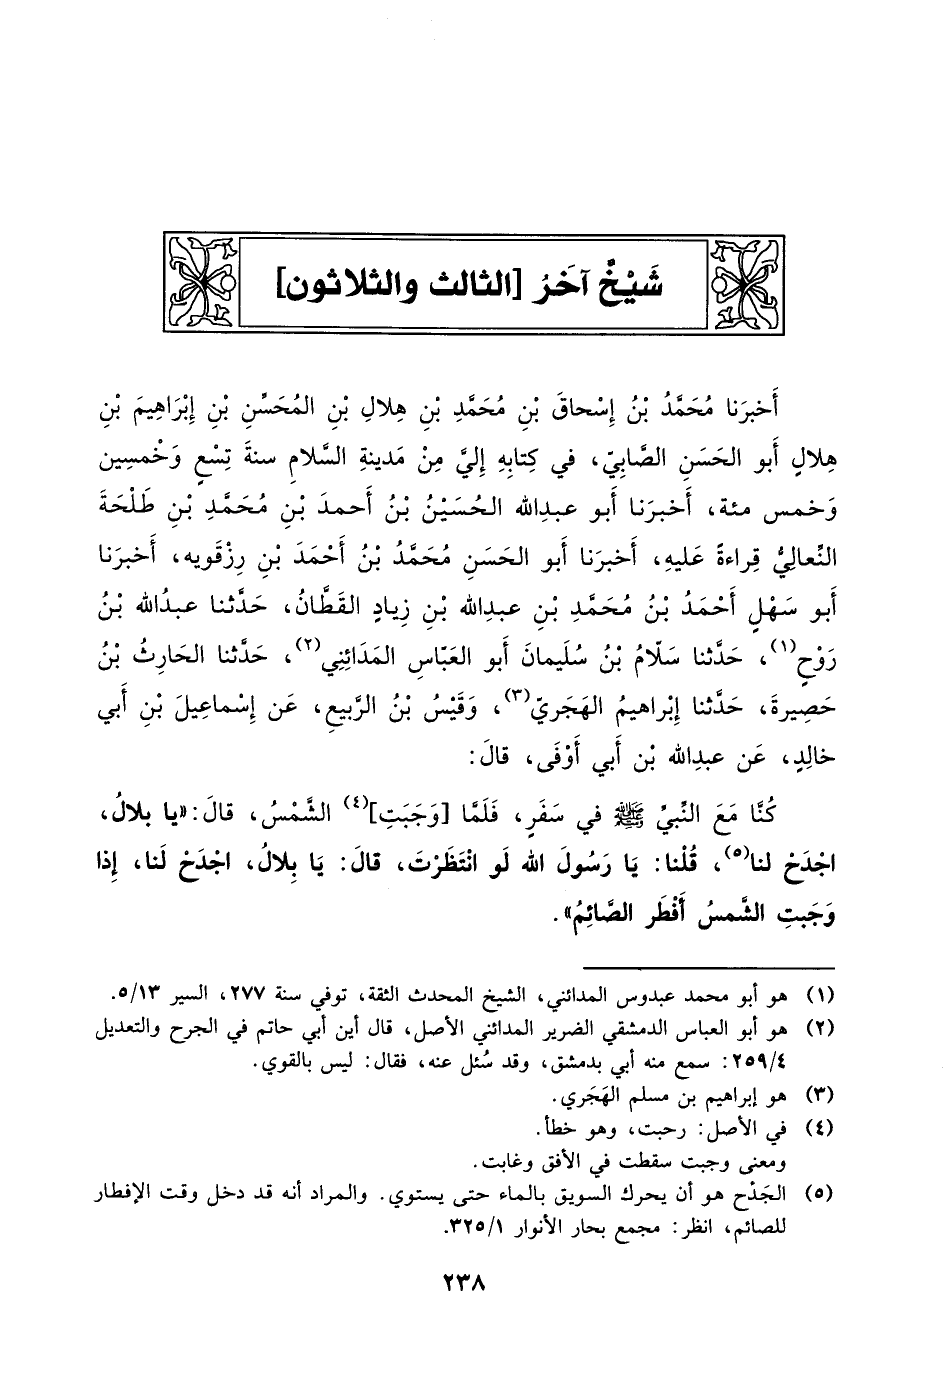 شَيْخٌ آخَرُ [الثالث والثلاثون]
أَخبرَنا مُحَمَّدُ بْنُ إِسْحاقَ بْنِ مُحَمَّدِ بْنِ هِلالِ بْنِ المُحَسِّنِ بْنِ إِبْرَاهِيمَ بْنِ
هِلالٍ أَبو الحَسَنِ الصَّابِيّ، في كِتابِهِ إِليَّ مِنْ مَدينةِ السَّلامِ سنةَ تِسْعٍ وَخْمسِين
وَخمس مئة، أَخبرَنا أَبو عبدِالله الحُسَيْنُ بْنُ أَحمدَ بْنِ مُحَمَّدِ بْنِ طَلْحَةَ
النِّعالِيُّ قِراءةً عَليهِ، أَخبرَنا أَبو الحَسَنِ مُحَمَّدُ بْنُ أَحْمَدَ بْنِ رِزْقويه، أَخبرَنا
أَبو سَهْلٍ أَحْمَدُ بْنُ مُحَمَّدِ بْنِ عبدِالله بْنِ زِيادٍ القَطَّانُ، حَدَّثنا عبدُالله بْنُ
رَوْحٍ(١)، حَدَّثنا سَلَّامُ بْنُ سُلَيمانَ أَبو العَبّاسِ المَدَائِنِي(٢)، حَدَّثنا الحَارِثُ بْنُ
حَصِيرةَ، حَدَّثنا إِبْراهيمُ الهَجَريّ(٣)، وَقَيْسُ بْنُ الرَّبيعِ، عَن إِسْماعِيلَ بْنِ أَبي
خالِدٍ، عَن عبدِالله بْن أَبي أَوْفَى، قالَ:
كُنَّا مَعَ النَّبيِّ ﷺ في سَفَرٍ، فَلَمَّا [وَجَبَتِ](٤) الشَّمْسُ، قالَ: «يا بلالُ،
اجْدَحْ لنا(٥)، قُلْنا: يَا رَسُولَ الله لَو انْتَظَرْتَ، قالَ: يَا بِلالُ، اجْدَحْ لَنا، إِذا
وَجَبتِ الشَّمسُ أَفْطَر الصَّائِمُ».
(١) هو أبو محمد عبدوس المدائني، الشيخ المحدث الثقة، توفي سنة ٢٧٧، السير ٥/١٣.
(٢) هو أبو العباس الدمشقي الضرير المدائني الأصل، قال أين أبي حاتم في الجرح والتعديل
٢٥٩/٤: سمع منه أبي بدمشق، وقد سُئل عنه، فقال: ليس بالقوي.
(٣) هو إبراهيم بن مسلم الهَجَري.
(٤) في الأصل: رحبت، وهو خطأ.
ومعنى وجبت سقطت في الأفق وغابت.
(٥) الجَدْح هو أن يحرك السويق بالماء حتى يستوي. والمراد أنه قد دخل وقت الإفطار
للصائم، انظر: مجمع بحار الأنوار ٣٢٥/١.
٢٣٨